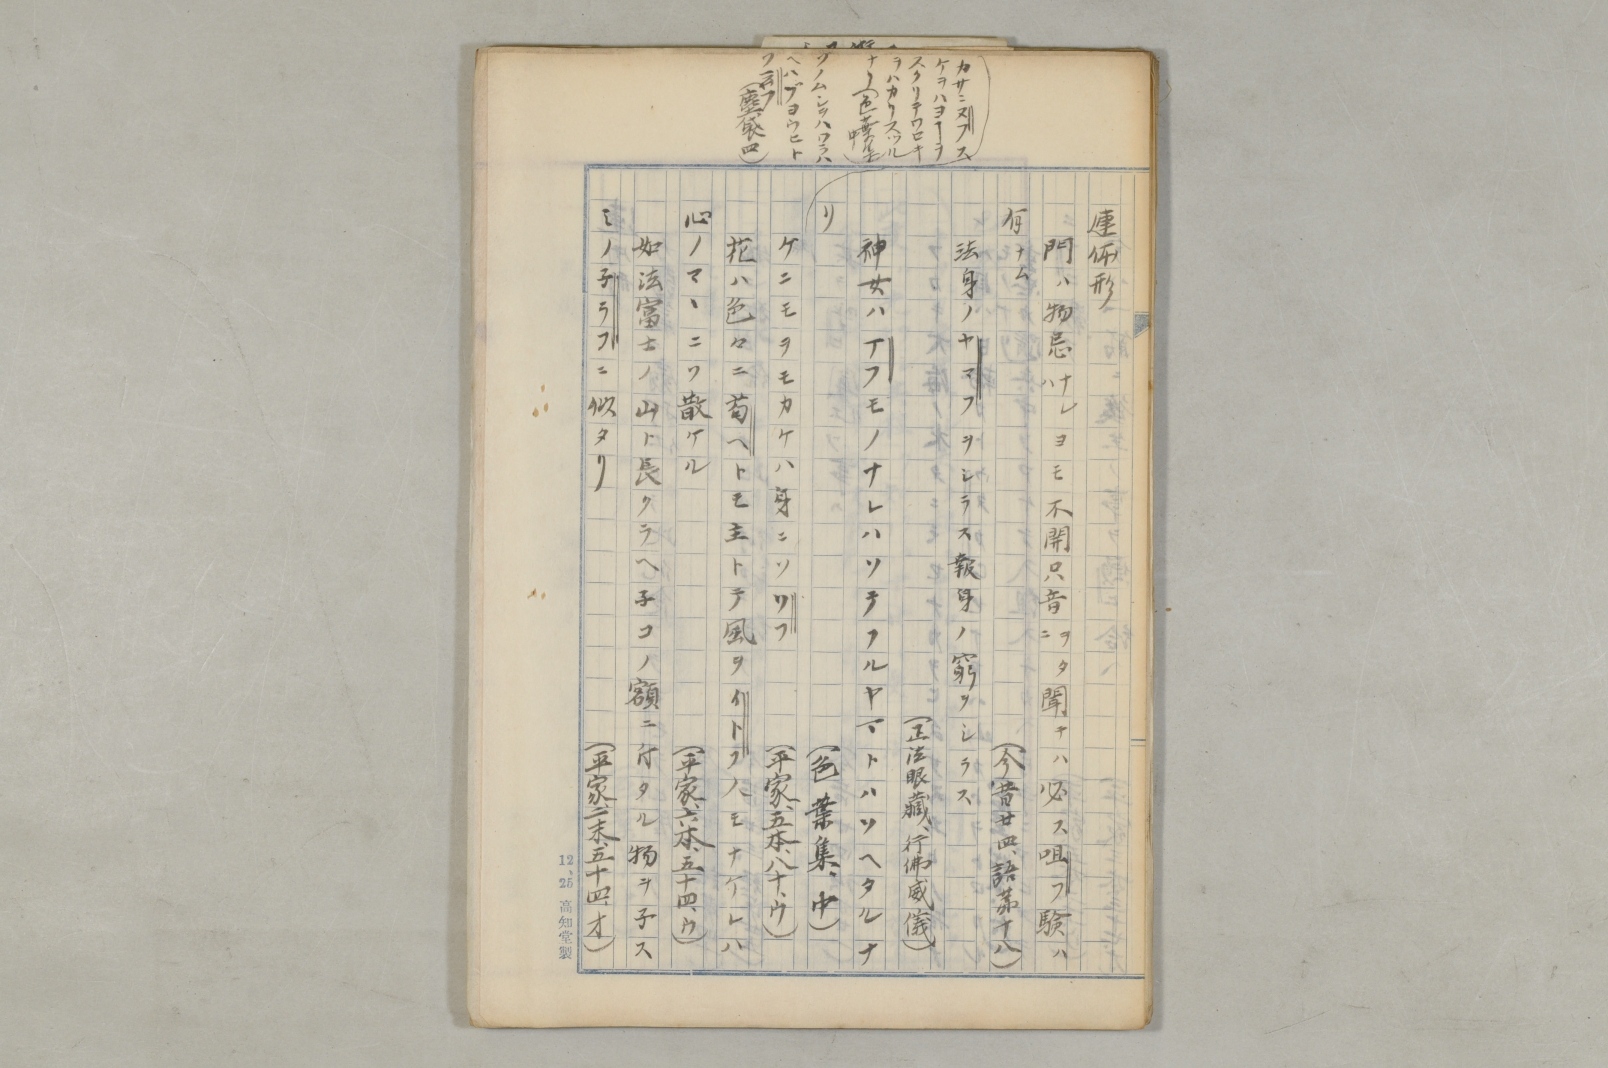 カサニヌフスケヲハヨ
スクリテワヒキ
ラハカリスツル
ナリ(色葉集中)
ソノムシロハワラハ
ヘハブヨウヒト
ツ云フ
(塵袋四)
連体形
門ハ物忌ナレハヨモ不開只音ヲタニ聞キハ必ス咀フ験ハ
何ナム
(今昔廿四、語第十八)
法身ノヤマフヲシラス報身ノ窮ヲシラス
(正法眼蔵、行佛威儀)
神女ハアフモノナレハソテフルヤマトハソヘタルナ
リ
(色葉集、中)
ケニモヲモカケハ身ニソリフ
(平家、五本、八十、ウ)
花ハ色々ニ匂ヘトモ主トテ風ヲイトフ人モナケレハ
心ノマヽニソ散ケル
(平家、六本、五十四、ウ)
如法富士ノ山ト長クラヘ子コノ額ニ付タル物ヲ子ス
ミノ子ラフニ似タリ
(平家二末、五十四、オ)
12、25 高知堂製